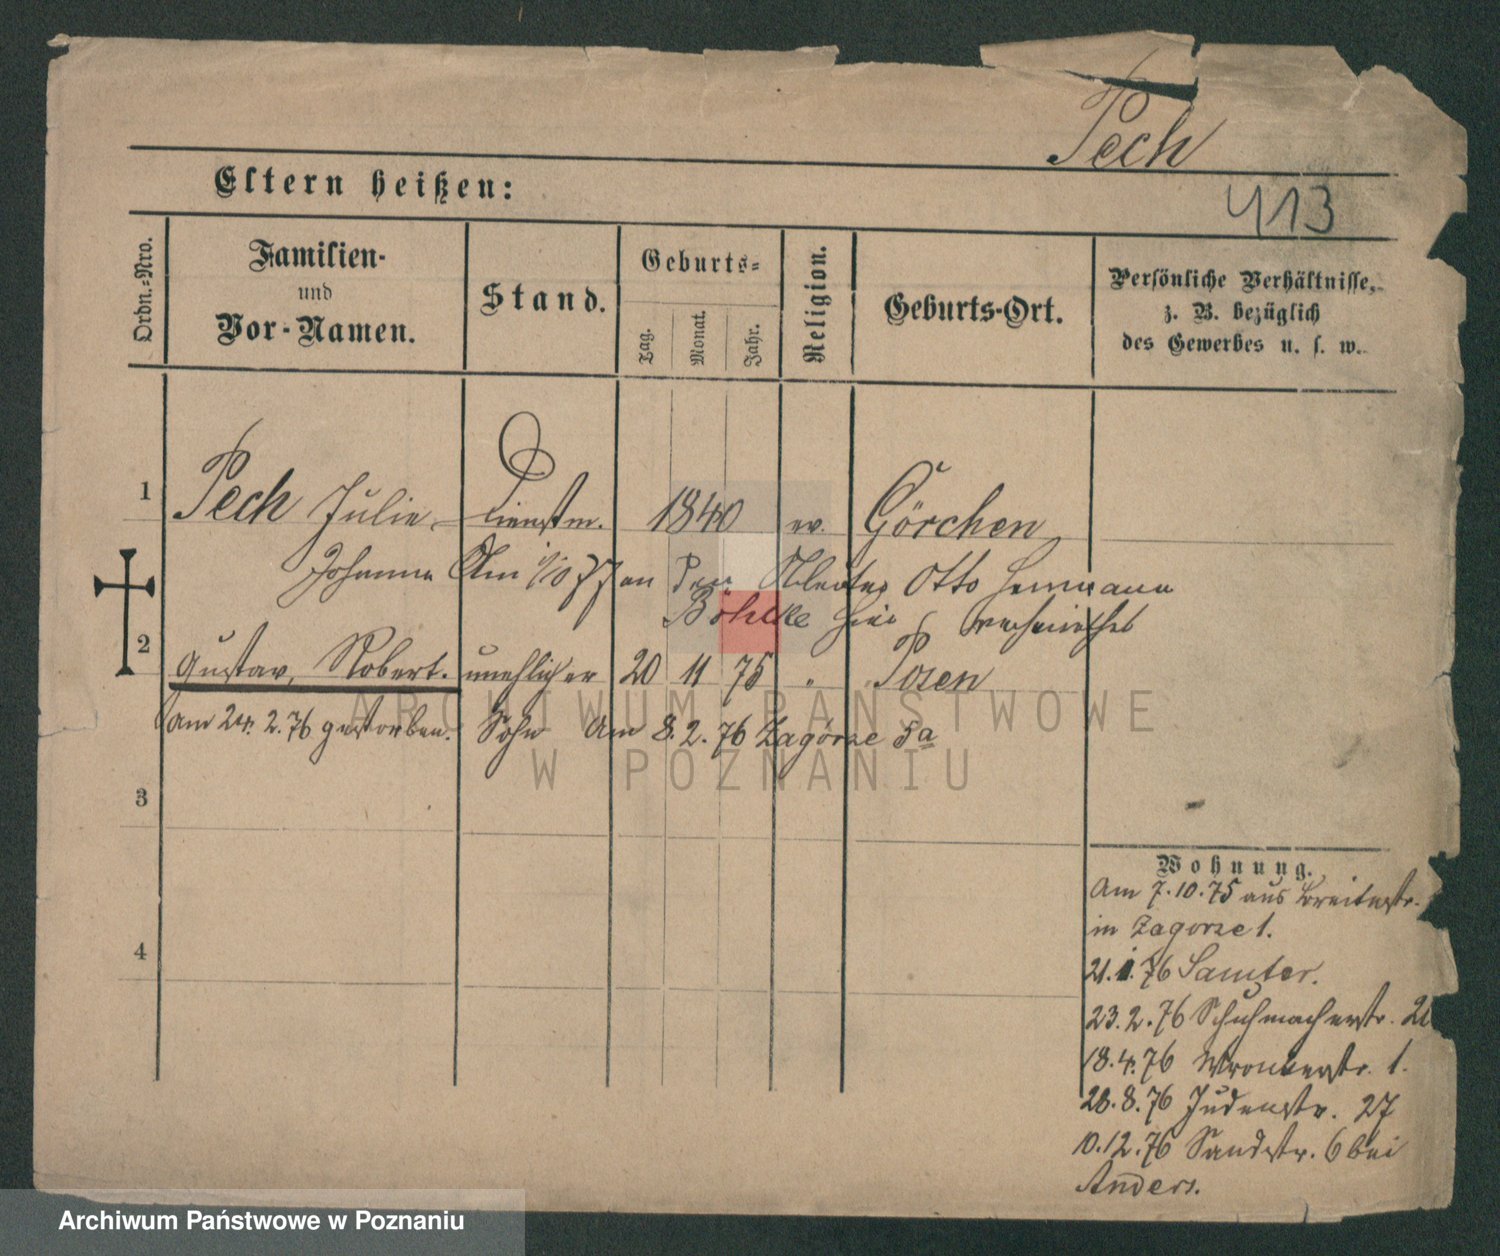 Pech
Eltern heißen:
413
Ordn.-Nro.
Familien-
und
Vor-Namen.
Stand.
Geburts-
Tag.
Monat.
Jahr.
Religion.
Geburts-Ort.
Persönliche Verhältnisse,
z. B. bezüglich
des Gewerbes u. s. w.
1 Pech Julie Dienstm. 1840 ev. Görchen
Johanna Am 1/10 77 an den Otto Hermann
Böhlke hier verheirathet
2 Gustav, Robert. unehlicher 20 11 75 " Posen
Am 24. 2. 76 gestorben. Sohn Am 8. 2. 76 Zagórze 5a
3
4
Wohnung.
Am 7. 10. 75 aus Breitestr.
in Zagorze 1.
21. 1. 76 Samter.
23. 2. 76 Schuhmacherstr. 21
18. 4. 76 Wronkerstr. 1.
28. 8. 76 Judenstr. 27
10. 12. 76 Sandstr. 6 bei
Anders.
ARCHIWUM PAŃSTWOWE
W POZNANIU
Archiwum Państwowe w Poznaniu